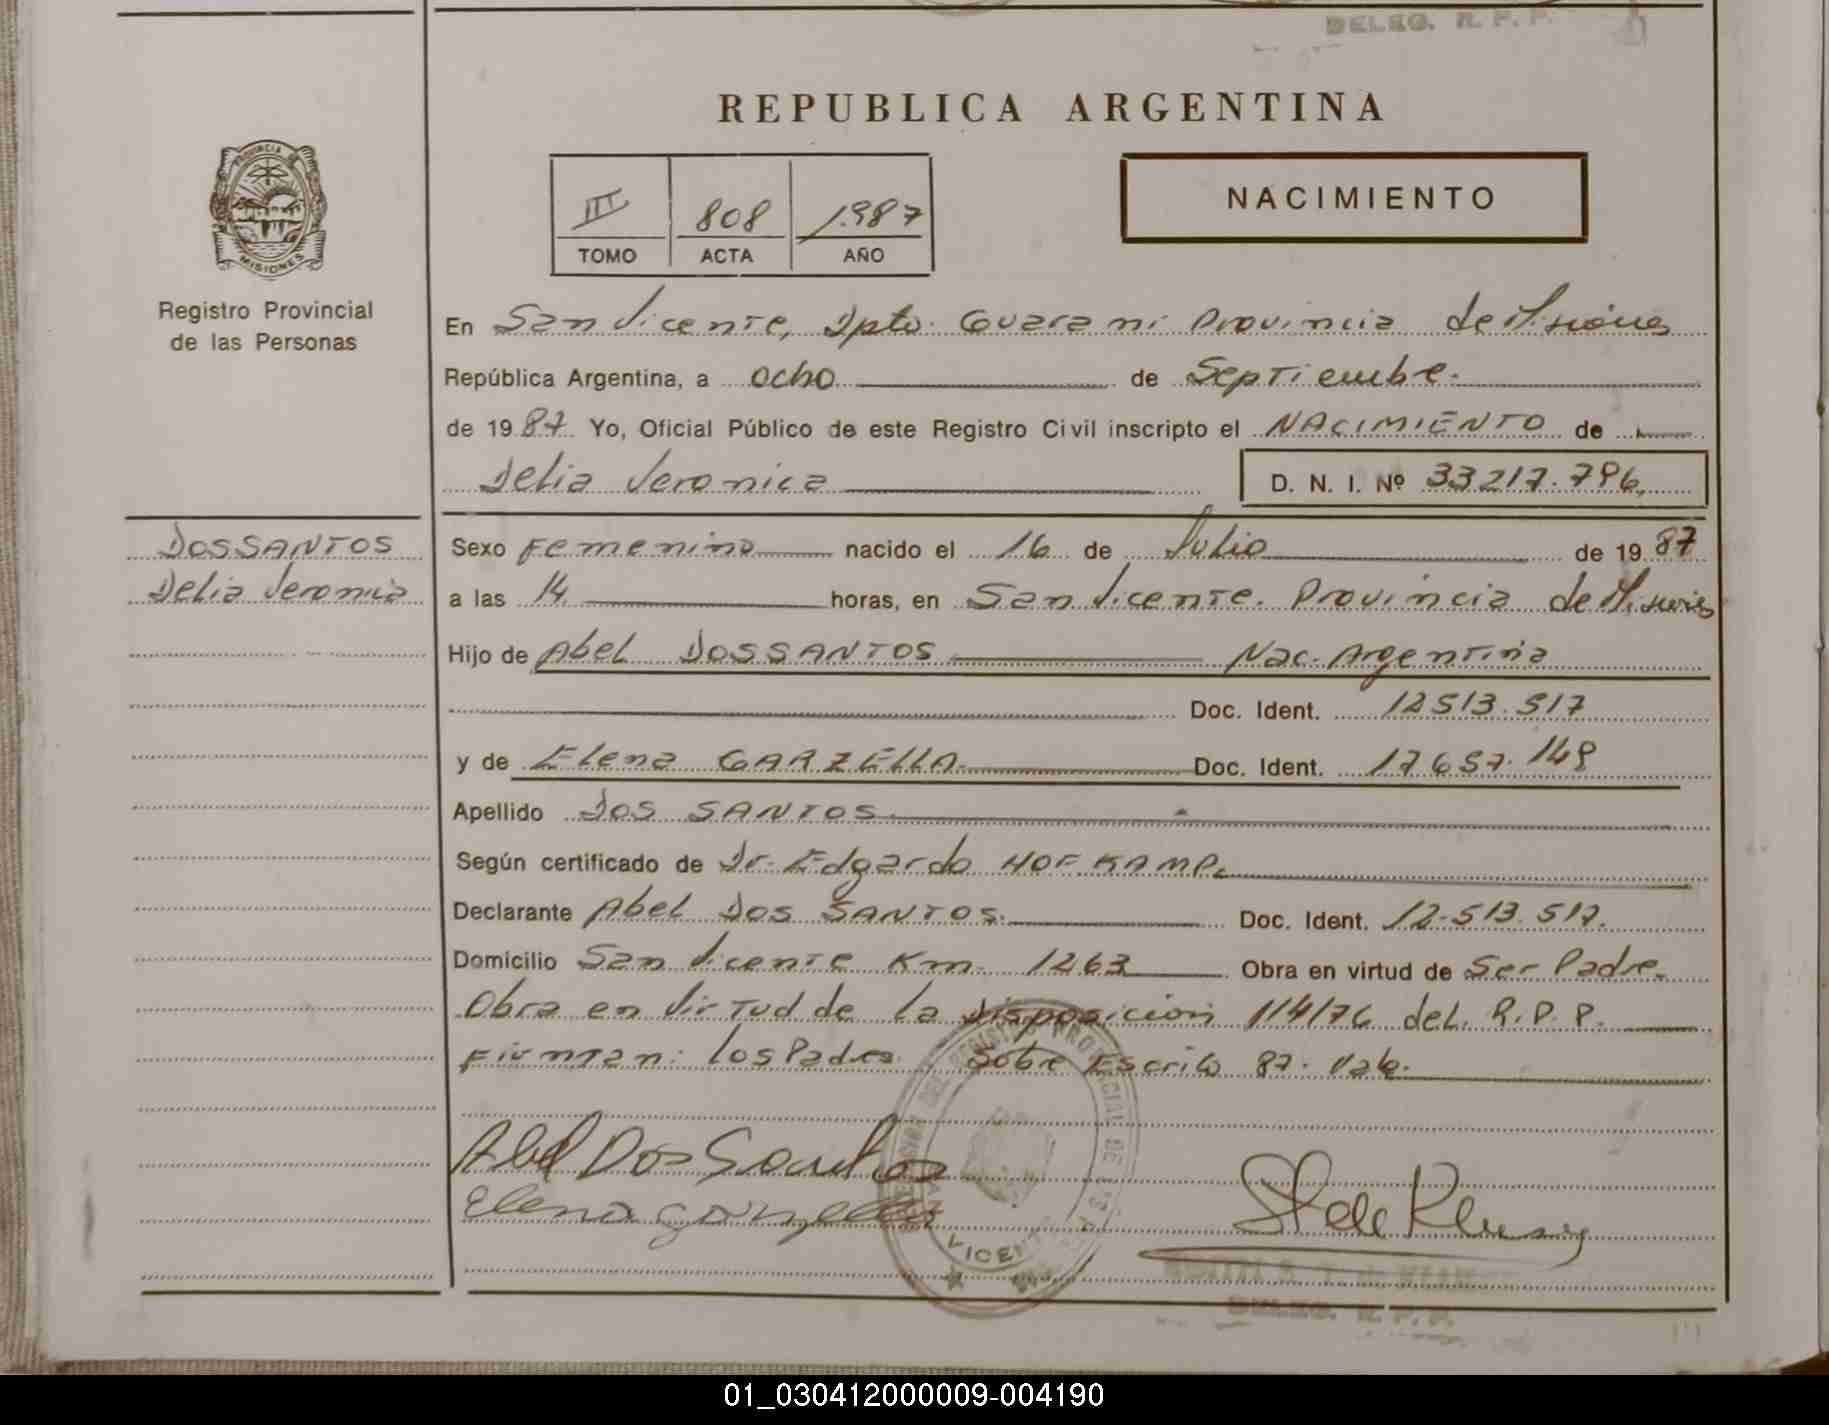 DELEG. R. P. P.
REPUBLICA ARGENTINA
PROVINCIA DE
MISIONES
Registro Provincial
de las Personas
III 808 1987
TOMO ACTA AÑO
NACIMIENTO
En San Vicente, Dpto. Guarani Provincia de Misiones
República Argentina, a ocho de Septiembre.
de 1987 Yo, Oficial Público de este Registro Civil inscripto el NACIMIENTO de
Delia Veronica D. N. I. Nº 33217.796
DOSSANTOS
Delia Veronica
Sexo Femenino nacido el 16 de Julio de 1987
a las 14 horas, en San Vicente. Provincia de Misiones
Hijo de Abel DOSSANTOS Nac. Argentina
Doc. Ident. 12513.517
y de Elena GARZELLA Doc. Ident. 17657.148
Apellido DOS SANTOS
Según certificado de Dr. Edgardo HOFKAMP.
Declarante Abel DOS SANTOS. Doc. Ident. 12.513.517.
Domicilio San Vicente Km. 1263 Obra en virtud de Ser Padre.
Obra en Virtud de la Disposicion 114/76 del. R.P.P.
Firman: los Padres. Sobre Escrito 87. Vale.
Abel Dos Santos
Elena garzella
VICENTE
DELEG. R. P. P.
01_030412000009-004190